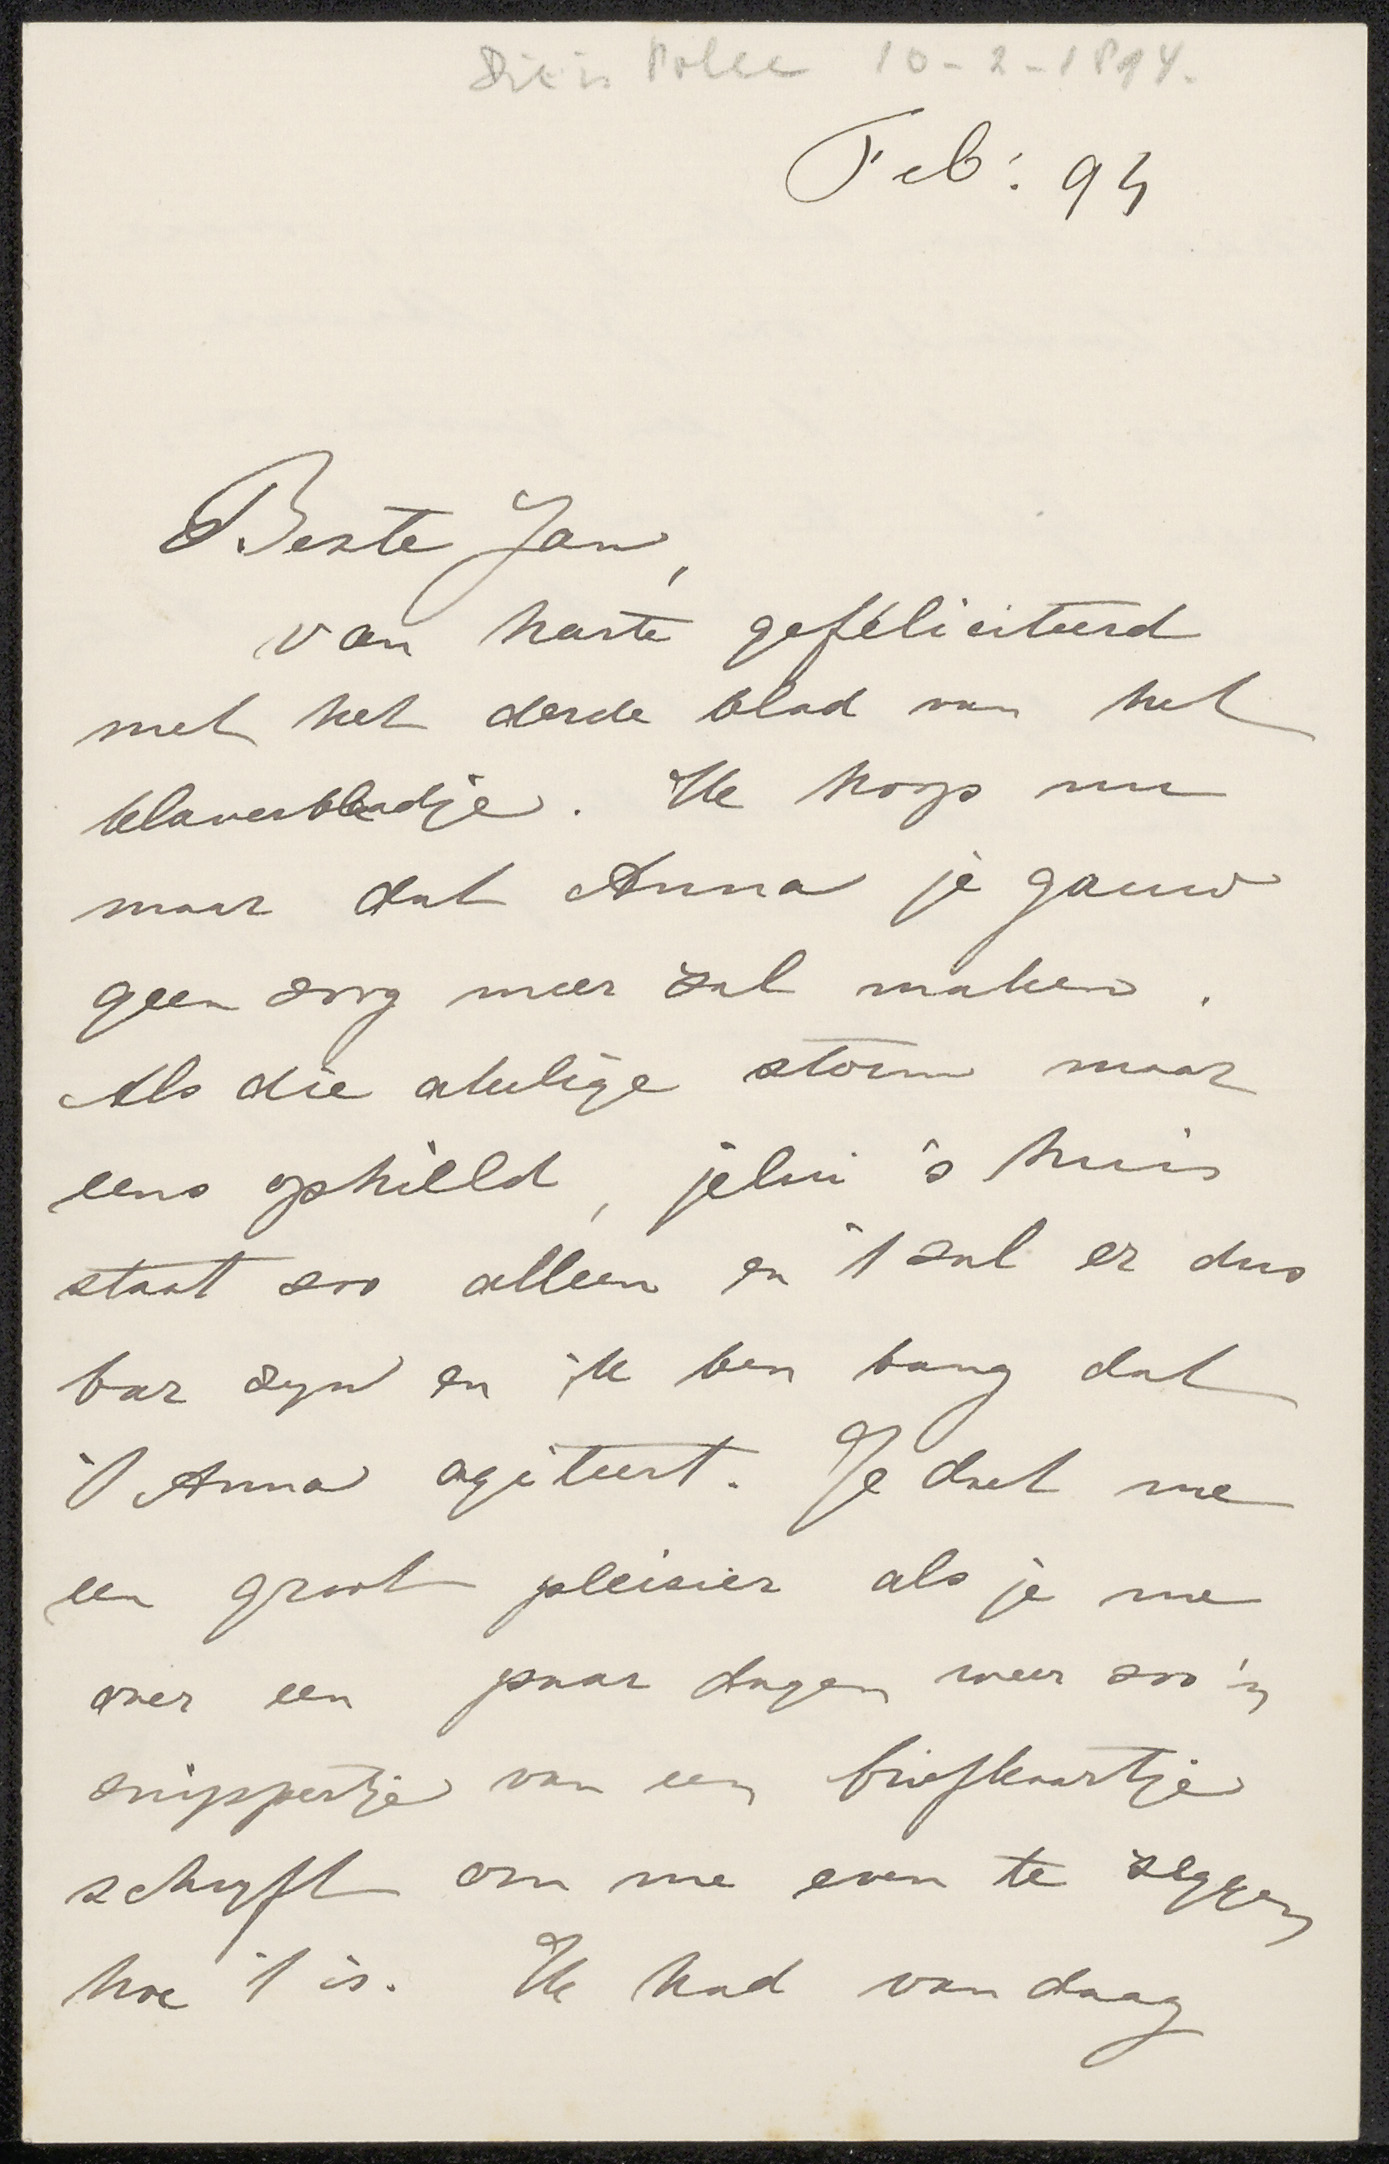 10-2-1894.
Feb: 94
Beste Jan,
van harte gefeliciteerd
met het derde blad van het
klaverblaadje. Ik hoop nu
maar dat Anna je gauw
geen zorg meer zal maken.
Als die akelige storm maar
eens ophield, jelui 's huis
staat zoo alleen en 't zal er dus
bar zyn en ik ben bang dat
't Anna agiteert. Je doet me
een groot pleisier als je me
over een paar dagen weer zoo'n
snippertje van een briefkaartje
schryft om me even te zeggen
hoe 't is. Ik had van daag